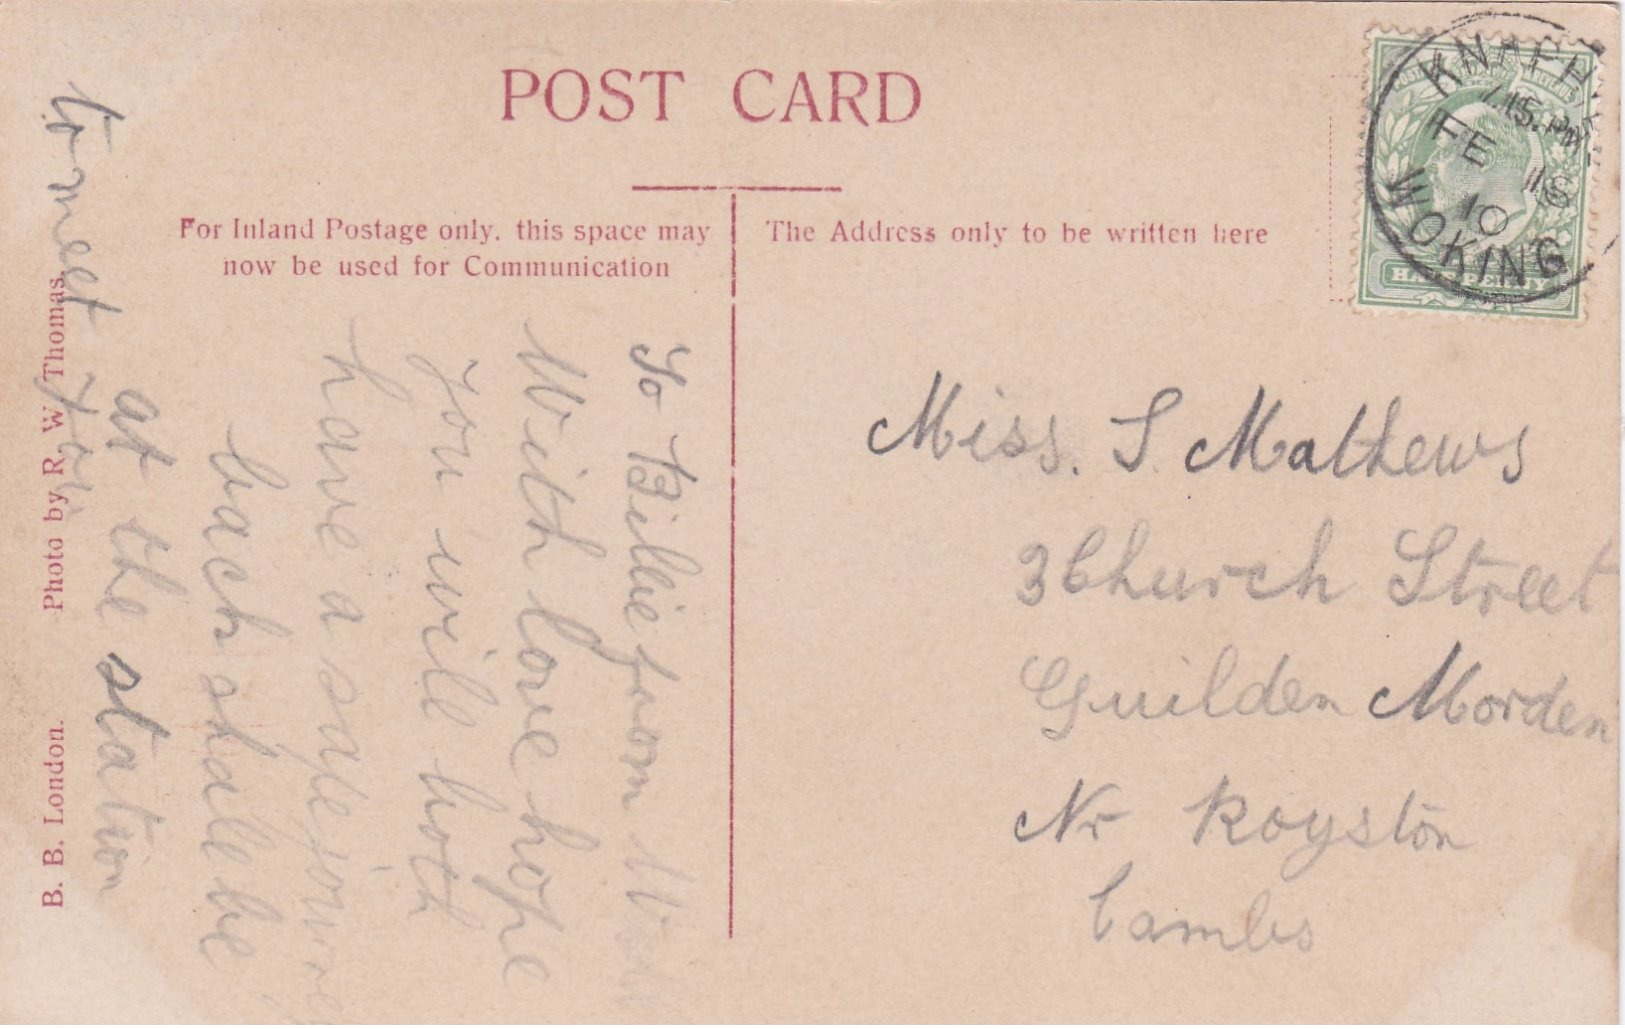 POST CARD
For Inland Postage only, this space may
now be used for Communication
The Address only to be written here
KNAPHI
7.15.PM
FE 18
10
WOKING
HALF PENNY
To Billie from
With love hope
you will both
have a safe journey
back shall be
at the station
to meet you
Miss. S. Mathews
3 Church Street
Guilden Morden
Nr Royston
Cambs
B. B. London. Photo by R. W. Thomas.